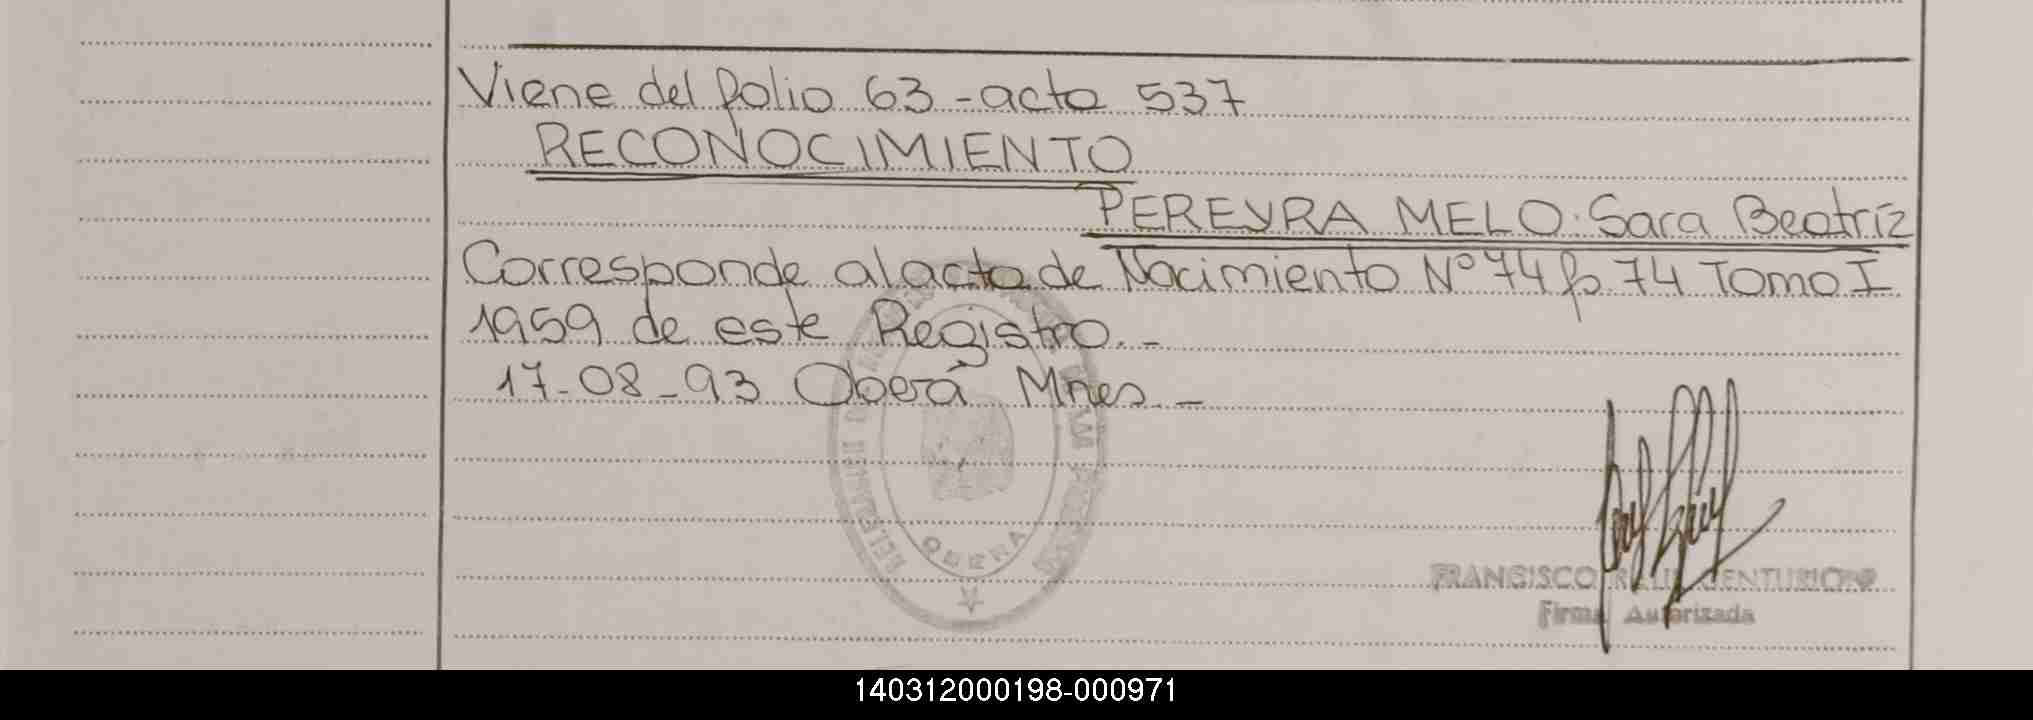 Viene del folio 63 - acta 537
RECONOCIMIENTO
PEREYRA MELO. Sara Beatríz
Corresponde al acta de Nacimiento Nº 74 fº 74 Tomo I
1959 de este Registro. -
17-08-93 Oberá Mnes. -
OBERA
FRANCISCO CENTURION
Firma Autorizada
140312000198-000971